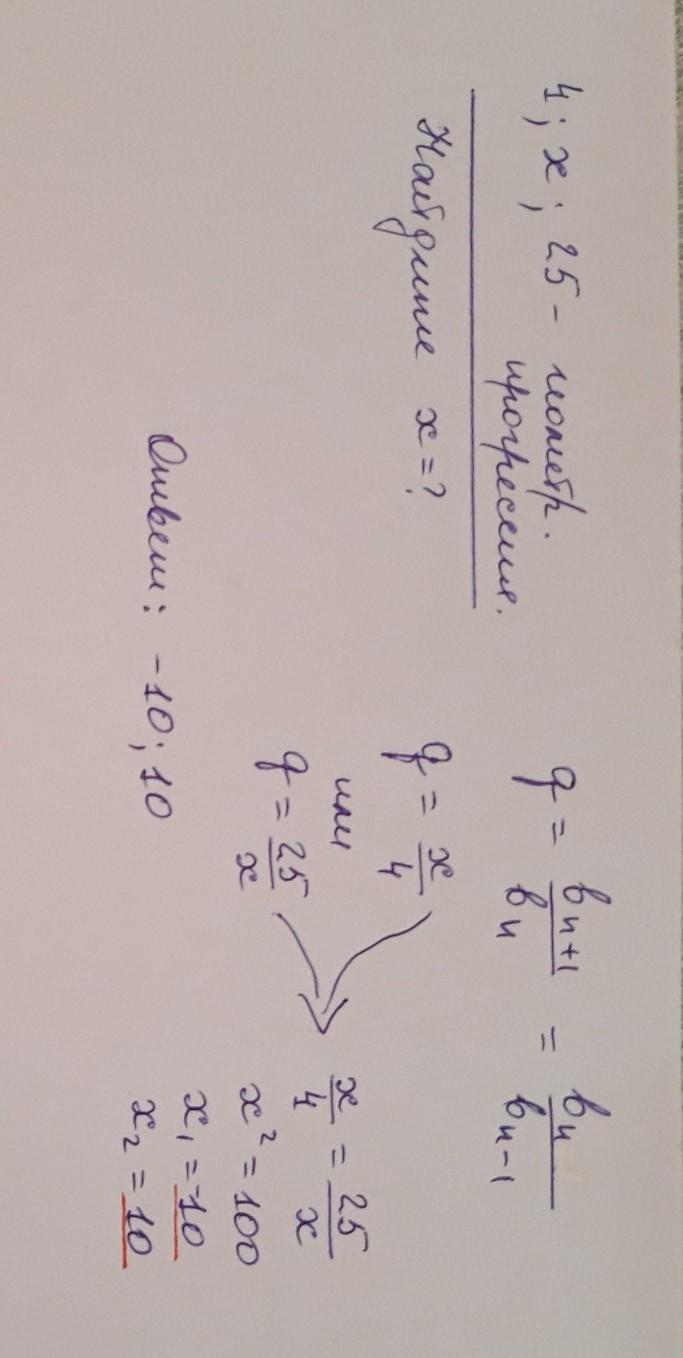 4; x; 25 - геометр.
прогрессия.
Найдите x = ?
q = bₙ₊₁/bₙ = bₙ/bₙ₋₁
q = x/4
или
q = 25/x
x/4 = 25/x
x² = 100
x₁ = -10
x₂ = 10
Ответ: -10; 10